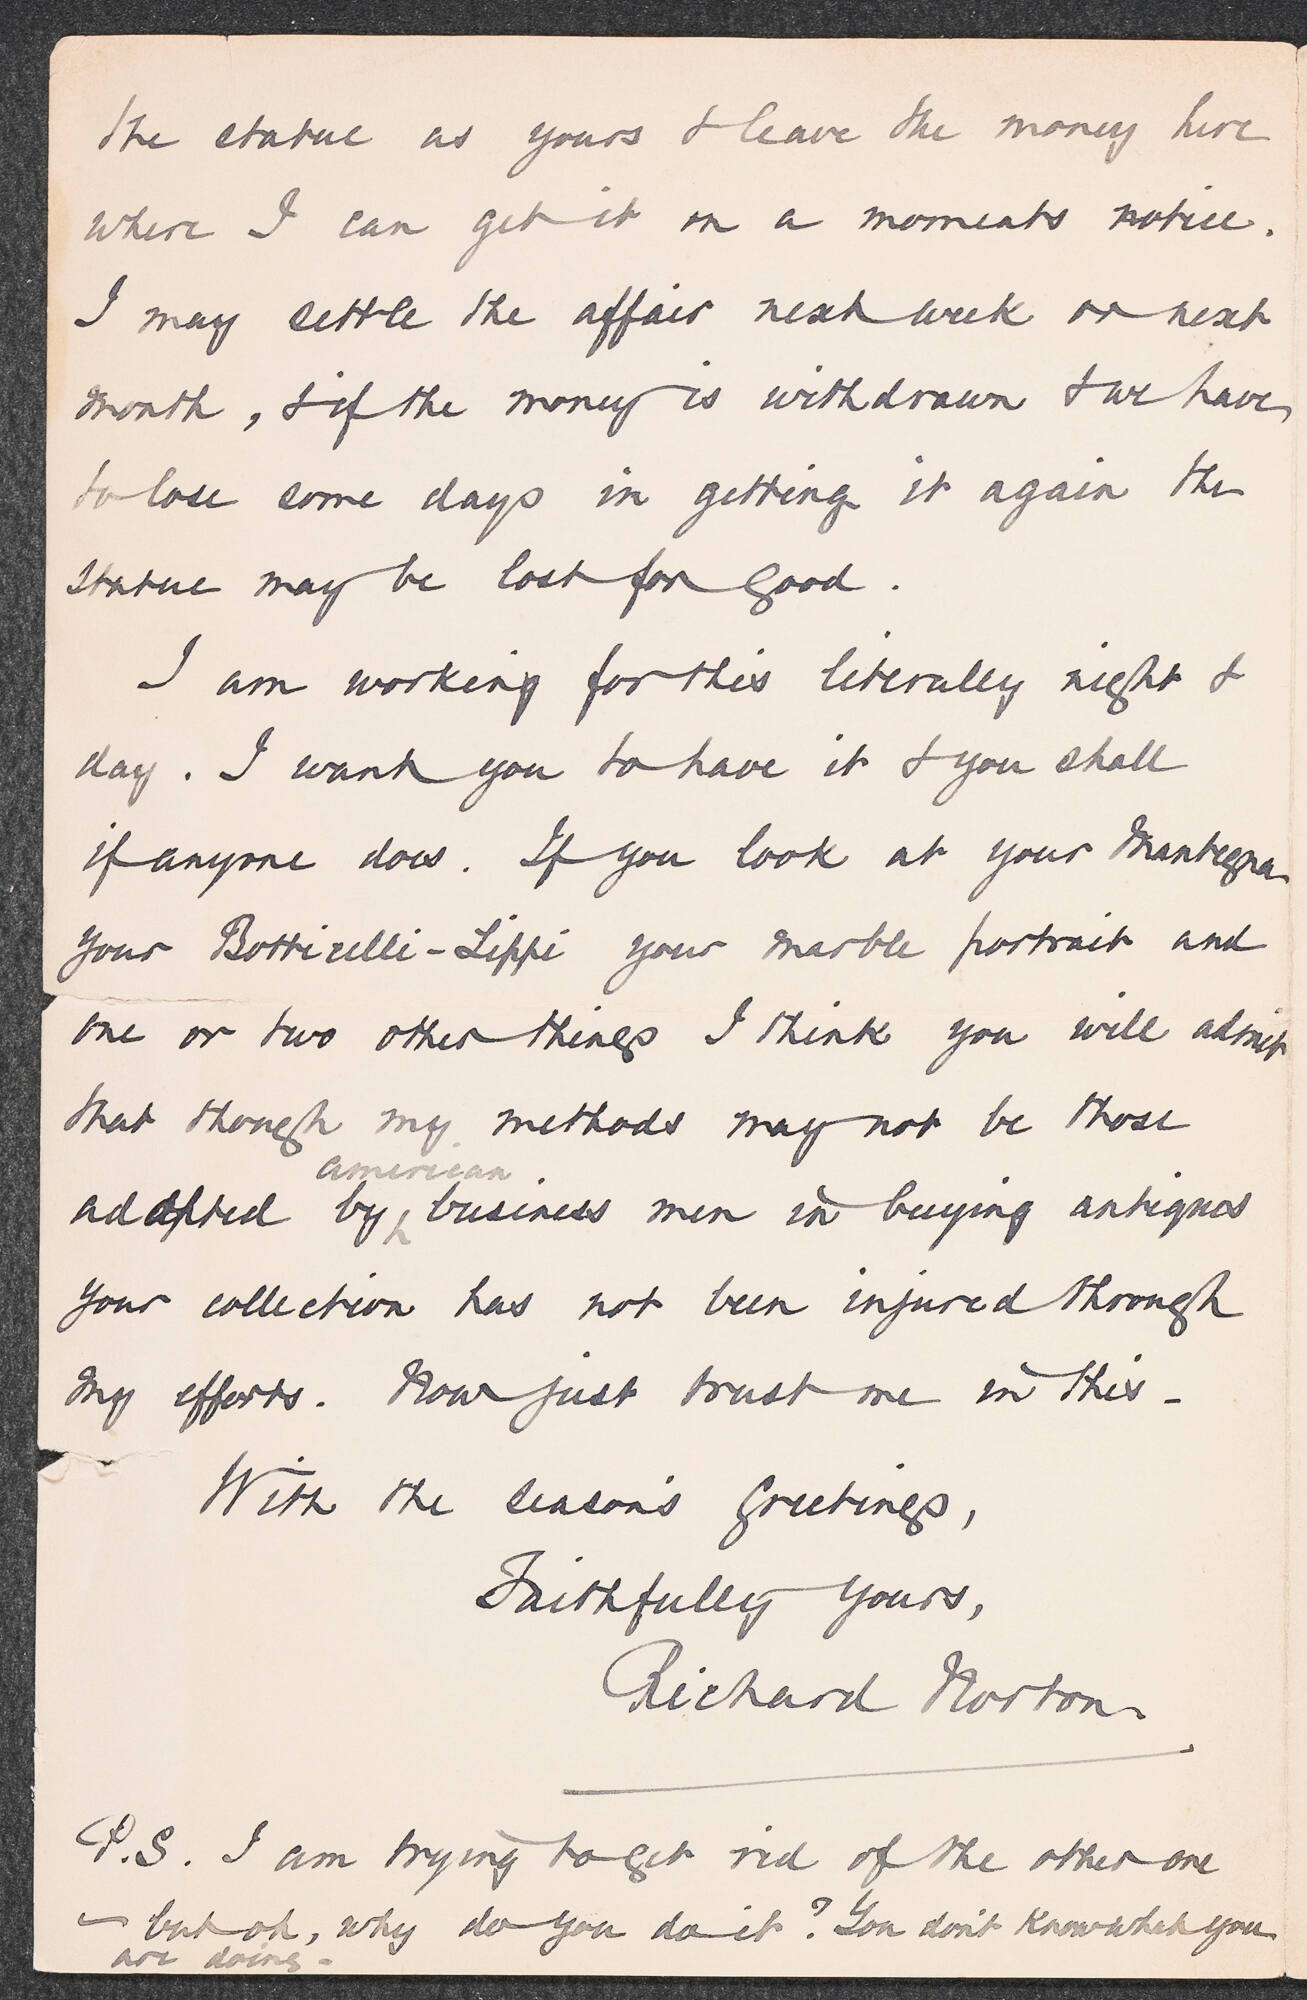 the statue as yours & leave the money here
where I can get it on a moments notice.
I may settle the affair next week or next
month, & if the money is withdrawn & we have
to lose some days in getting it again the
statue may be lost for good.
I am working for this literally night &
day. I want you to have it & you shall
if anyone does. If you look at your Mantegna
your Botticelli-Lippi your marble portrait and
one or two other things I think you will admit
that though my methods may not be those
american
adopted by business men in buying antiques
your collection has not been injured through
my efforts. Now just trust me in this -
With the season's greetings,
Faithfully yours,
Richard Norton.
P.S. I am trying to get rid of the other one
- but oh, why do you do it? You don't know what you
are doing -